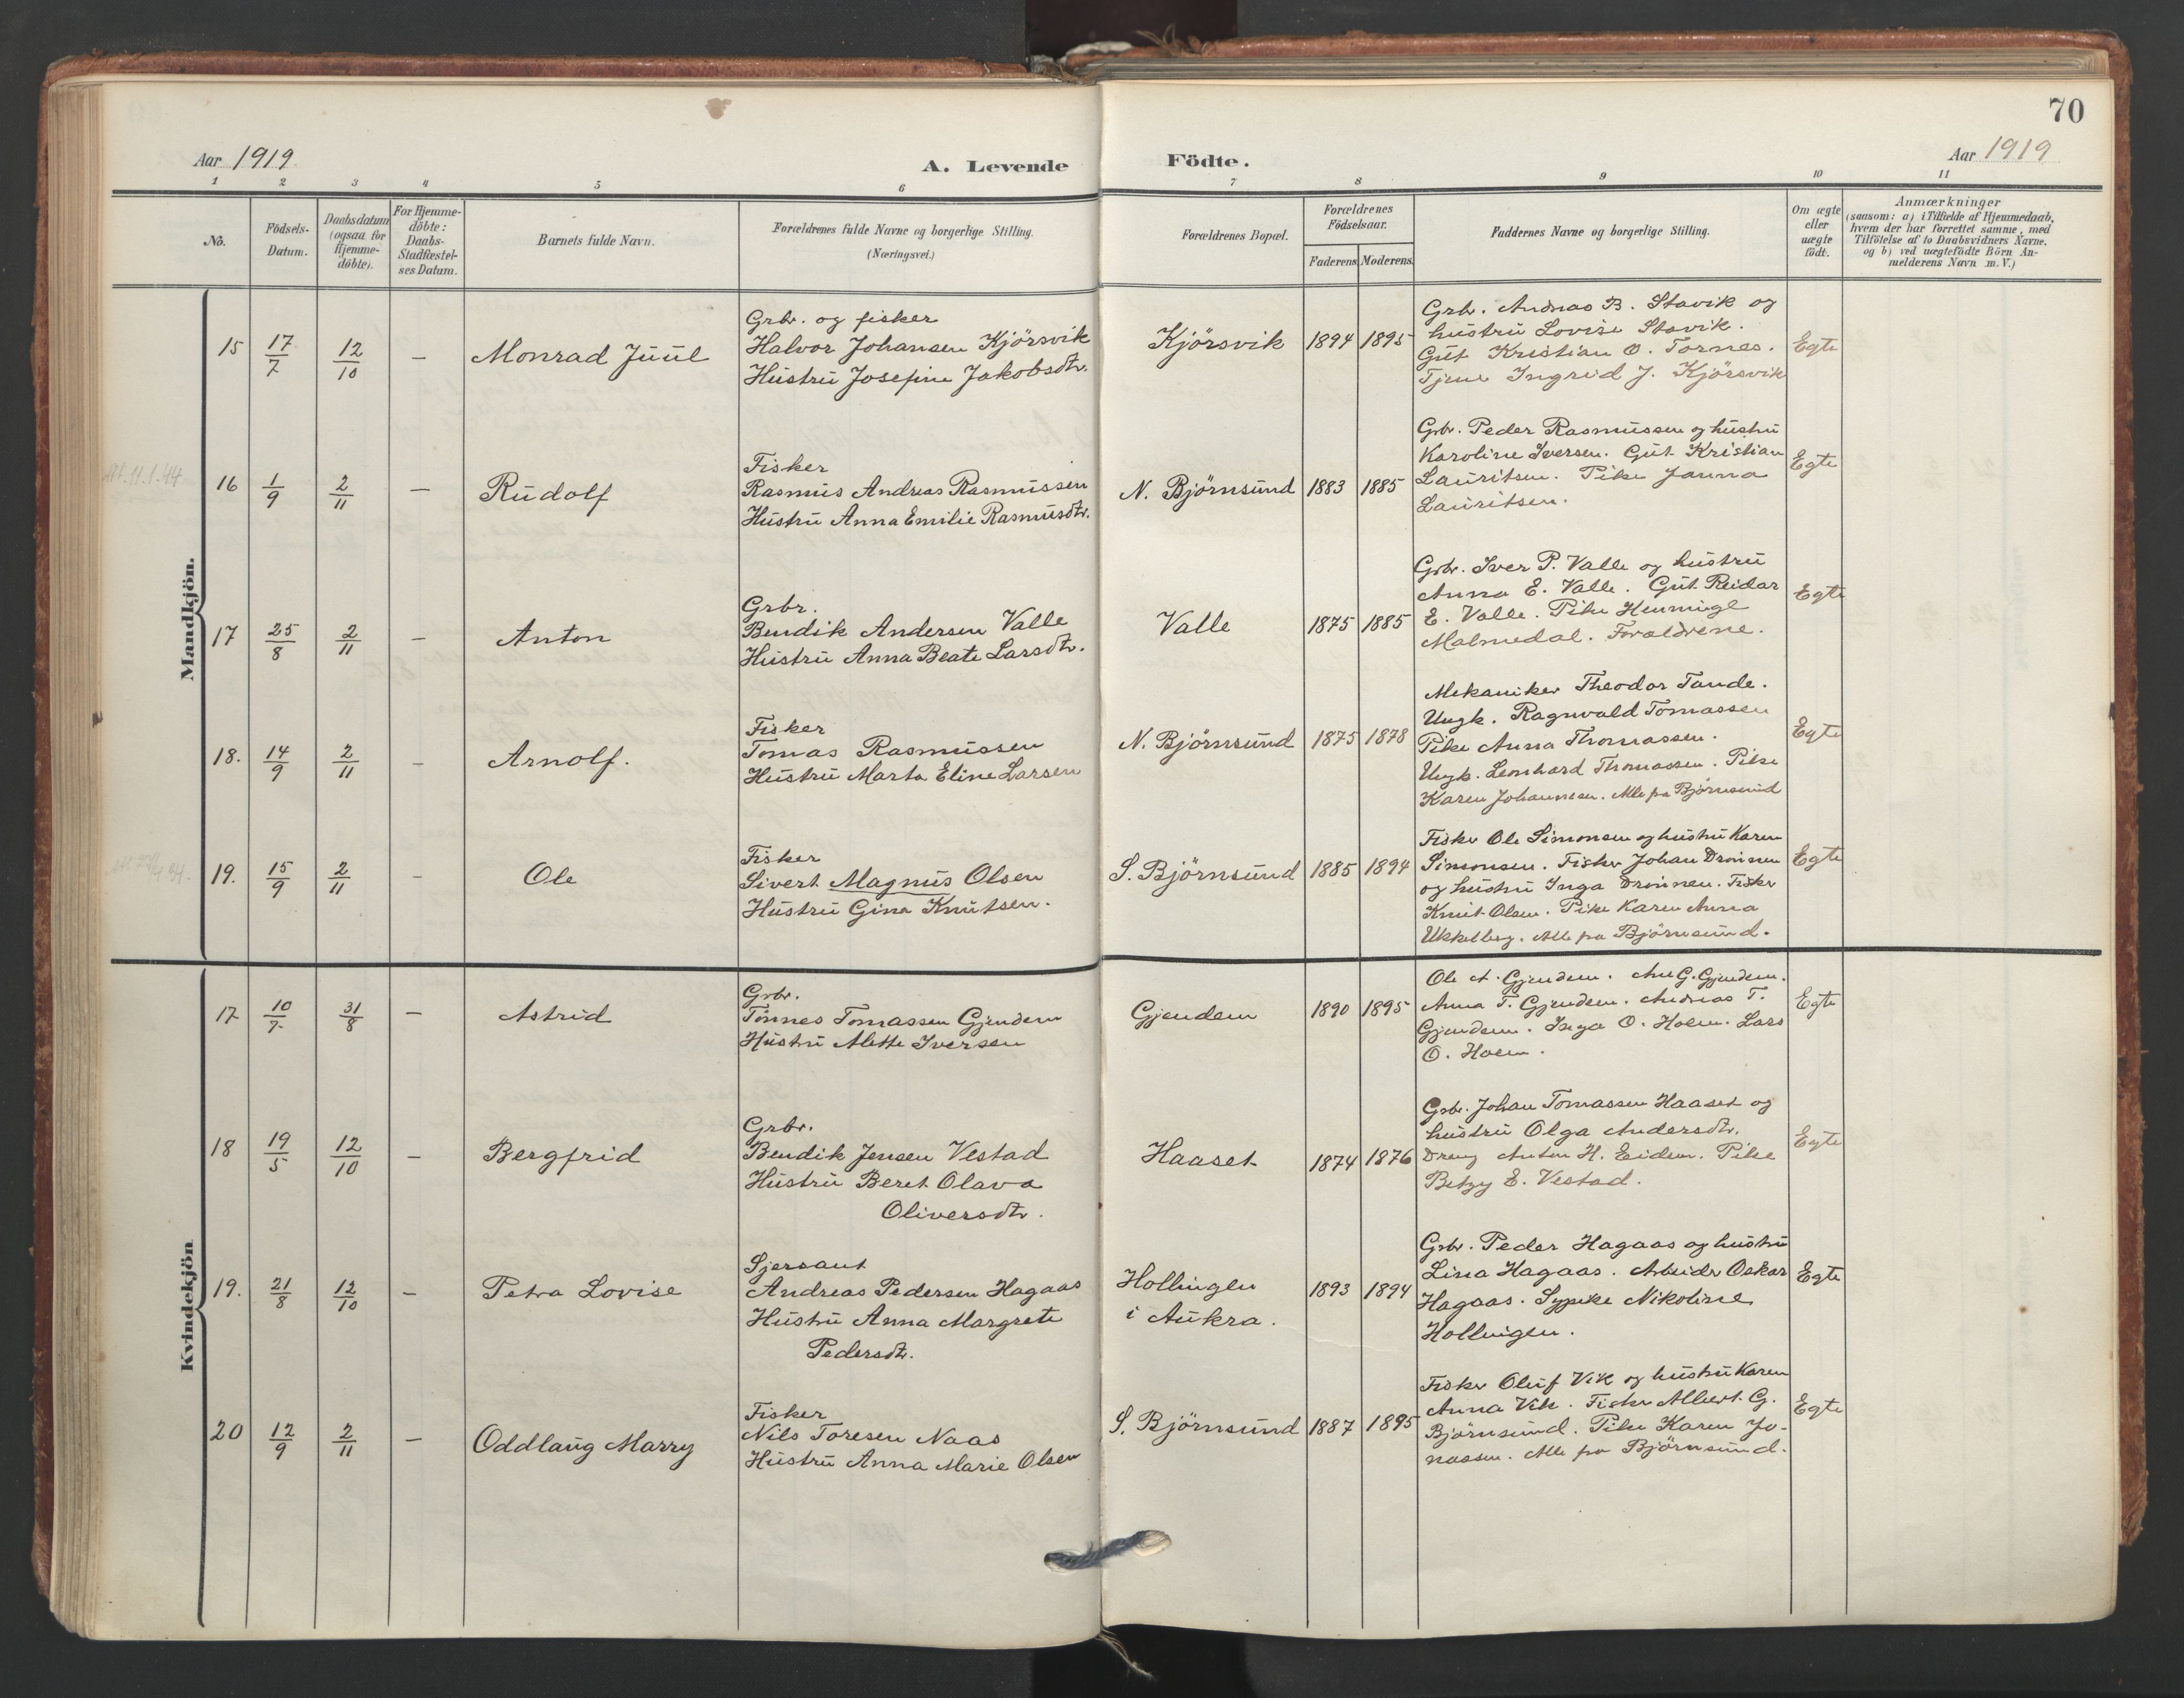 70
Aar 1919
A. Levende
Födte.
Aar 1919
1 2 3 4 5 6 7 8 9 10 11
No.
Födsels-
Datum.
Daabsdatum
(ogsaa for
Hjemme-
döbte).
For Hjemme-
döbte:
Daabs-
Stadfæstel-
ses Datum.
Barnets fulde Navn.
Forældrenes fulde Navne og borgerlige Stilling.
(Næringsvei.)
Forældrenes Bopæl.
Forældrenes
Födselsaar.
Faderens. Moderens.
Faddernes Navne og borgerlige Stilling.
Om ægte
eller
uægte
födt.
Anmærkninger
(saasom: a) i Tilfælde af Hjemmedaab,
hvem der har forrettet samme, med
Tilföielse af to Daabsvidners Navne.
og b) ved uægtefödte Börn An-
melderens Navn m. V.)
Mandkjön.
15 17/7 12/10 — Monrad Juul
Grbr. og fisker
Halvor Johansen Kjörsvik
Hustru Josefine Jakobsdtr.
Kjörsvik 1894 1895
Grbr. Andreas B. Stavik og
hustru Lovise Stavik.
Gut Kristian O. Tornes.
Tjene Ingrid J. Kjörsvik
Egte
Att. 11.1.44
16 1/9 2/11 — Rudolf
Fisker
Rasmus Andreas Rasmussen
Hustru Anna Emilie Rasmusdtr.
N. Björnsund 1883 1885
Grbr. Peder Rasmussen og hustru
Karoline Iversen. Gut Kristian
Lauritsen. Pike Janna
Lauritsen.
Egte
17 25/8 2/11 — Anton
Grbr.
Bendik Andersen Valle
Hustru Anna Beate Larsdtr.
Valle 1875 1885
Grbr. Iver P. Valle og hustru
Anna E. Valle. Gut Reidar
E. Valle. Pike
Malmedal. Forældrene.
Egte
18. 14/9 2/11 — Arnolf.
Fisker
Tomas Rasmussen
Hustru Marta Eline Larsen
N. Björnsund 1875 1878
Mekaniker Theodor Tande.
Ungk. Ragnvald Tomassen
Pike Anna Thomassen.
Ungk. Leonhard Thomassen. Pike
Karen Johannesen. Alle pa Björnsund
Egte
19. 15/9 2/11 — Ole
Fisker
Sivert Magnus Olsen
Hustru Gina Knutsen.
S. Björnsund 1885 1894
Fisker Ole Simonsen og hustru Karen
Simonsen. Fisker Johan Drönnen
og hustru Inga Drönnen. Fisker
Knut Olsen. Pike Karen Anna
Ukkelberg. Alle pa Björnsund.
Egte
Kvindekjön
17 10/7 31/8 — Astrid
Grbr.
Tönnes Tomassen Gjendem
Hustru Alette Iversen
Gjendem 1890 1895
Ole A. Gjendem. Ane G. Gjendem.
Anna T. Gjendem. Andreas T.
Gjendem. Inga O. Hoem. Lars
O. Hoem.
Egte
18 19/5 12/10 — Bergfrid
Grbr.
Bendik Jensen Vestad
Hustru Beret Olava
Oliversdtr.
Haaset 1874 1876
Grbr. Johan Tomassen Haaset og
hustru Olga Andersdtr.
Dreng Anton H. Eidem. Pike
Betzy E. Vestad.
Egte
19. 21/8 12/10 — Petra Lovise
Sjersant
Andreas Pedersen Hagaas
Hustru Anna Margrete
Pedersdtr.
Hollingen
i Aukra.
1893 1894
Grbr. Peder Hagaas og hustru
Lina Hagaas. Arbeider Oskar
Hagaas. Sypike Nikoline
Hollingen.
Egte
20 12/9 2/11 — Oddlaug Marry
Fisker
Nils Toresen Naas
Hustru Anna Marie Olsen
S. Björnsund 1887 1895
Fisker Oluf Vik og hustru Karen
Anna Vik. Fisker Albert G.
Björnsund. Pike Karen Jo-
nassen. Alle pa Björnsund.
Egte